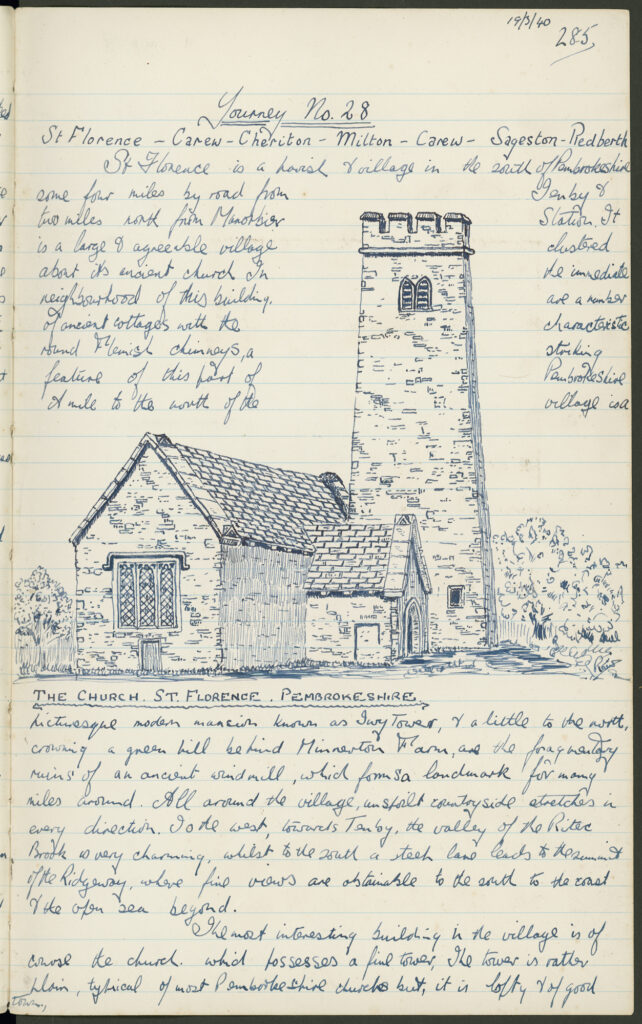 19/3/40
285,
Journey No. 28
St Florence – Carew – Cheriton – Milton – Carew – Sageston – Redberth
St Florence is a parish & village in the south of Pembrokeshire
some four miles by road from Tenby &
two miles north from Manorbier Station. It
is a large & agreeable village clustered
about its ancient church In the immediate
neighbourhood of this building, are a number
of ancient cottages with the characteristic
round Flemish chimneys, a striking
feature of this part of Pembrokeshire
A mile to the north of the village is a
THE CHURCH. ST. FLORENCE. PEMBROKESHIRE.
picturesque modern mansion known as Ivy Tower, & a little to the north,
crowning a green hill behind Minnerton Farm, are the fragmentary
ruins of an ancient windmill, which forms a landmark for many
miles around. All around the village, unspoilt countryside stretches in
every direction. To the west, towards Tenby, the valley of the Ritec
Brook is very charming, whilst to the south a steep lane leads to the summit
of the Ridgeway, where fine views are obtainable to the south to the coast
& the open sea beyond.
The most interesting building in the village is of
course the church. which possesses a fine tower, The tower is rather
plain, typical of most Pembrokeshire churches but, it is lofty & of good
town,